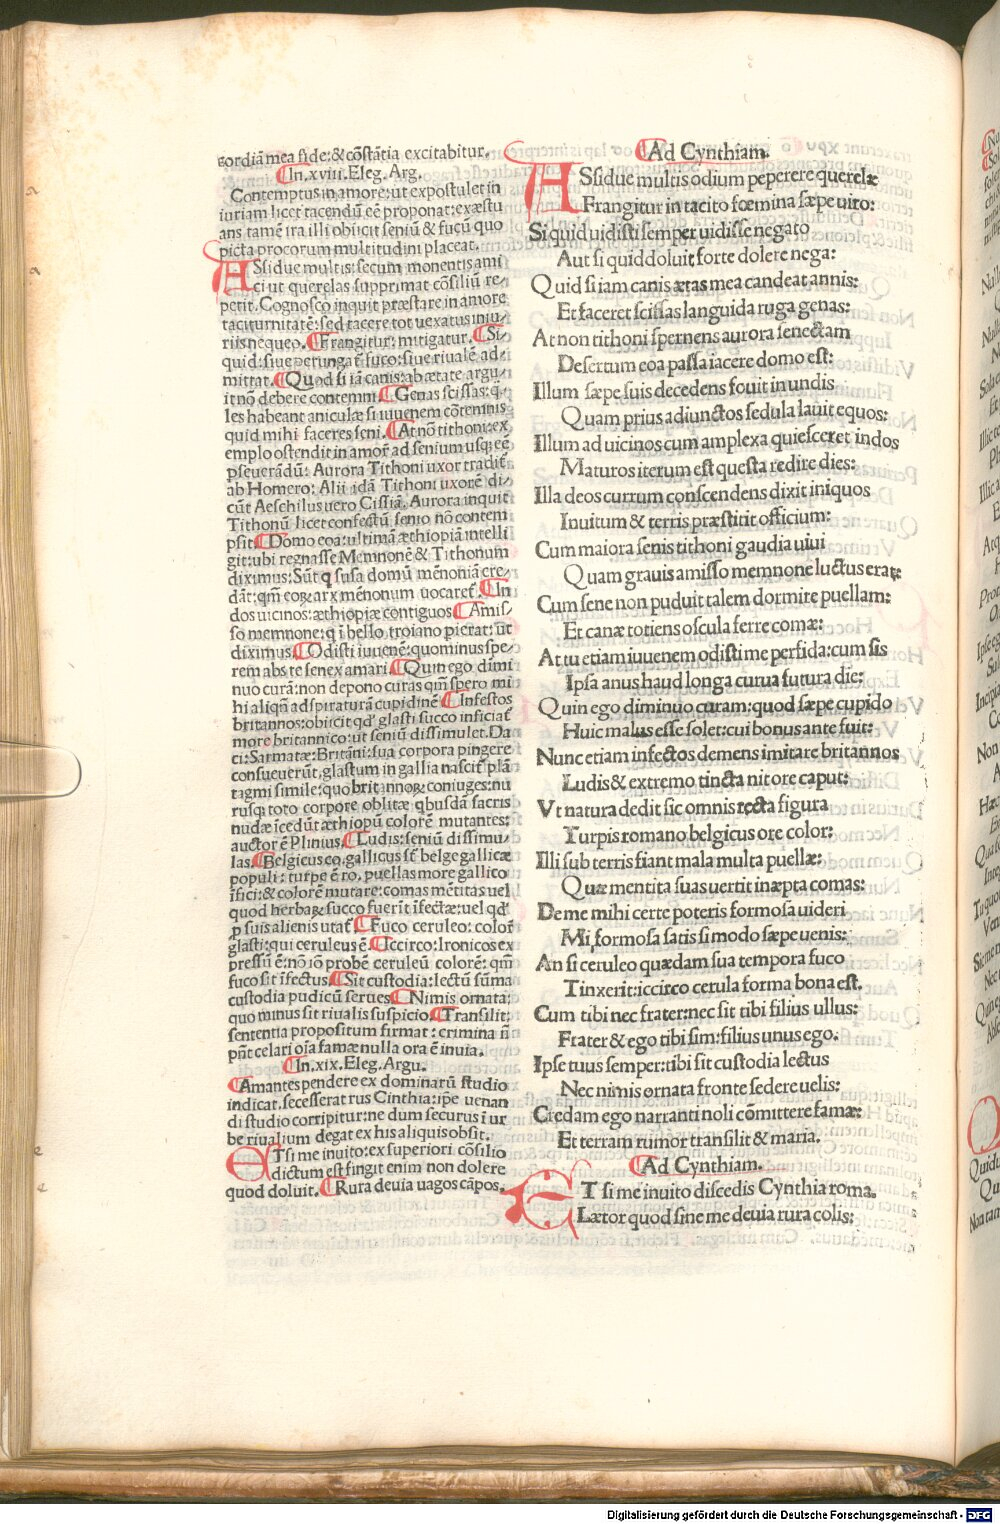 cordiã mea fide: & cõstãtia excitabitur.
In. xviii. Eleg. Arg.
Contemptus in amore: ut expostulet in
iuriam licet tacendũ eẽ proponat: ex æstu
ans tamẽ ira illi obiicit seniũ & fucũ quo
picta procorum multitudini placeat.
ASsidue multis: secum monentis ami
ci ut querelas supprimat cõsiliũ re-
petit. Cognosco inquit præstare in amore
taciturnitatẽ: sed tacere tot uexatus iniu-
riis nequeo. Frangitur: mitigatur. Si-
quid: siue perungat fuco: siue riualẽ ad-
mittat. Quod si iã canis: ab ætate argu
it nõ debere contemni Genas scissas: q̃
les habeant aniculæ si iuuenem cõtemnis
quid mihi faceres seni. At nõ tithoni: ex
emplo ostendit in amorẽ ad senium usq; eẽ
pseuerãdũ: Aurora Tithoni uxor tradit
ab Homero: Alii idã Tithoni uxorẽ di-
cũt Aeschilus uero Cissiã. Aurora inquit
Tithonũ licet confectũ senio nõ contem
psit. Domo eoa: ultimã æthiopiã intelli
git: ubi regnasse Memnonẽ & Tithonum
diximus: Sũt q susa domũ mẽnoniã cre-
dãt: qm̃ eoꝝ arx mẽnonium uocaret. In
dos uicinos: æthiopiæ contiguos Amis-
so memnone: q ĩ bello troiano pierat: ũt
diximus. Odisti iuuenẽ: quominus spe-
rem abs te senex amari. Quin ego dimi
nuo curã: non depono curas qm̃ spero mi
hi aliqñ adspiraturã cupidinẽ Infestos
britannos: obiicit qd̓ glasti succo inficiat
more britannico: ut seniũ dissimulet. Da
ci: Sarmatæ: Britãni: sua corpora pingere
consueuerũt, glastum in gallia nascit plã
tagini simile: quo britannoꝝ coniuges: nu
rusq; toto corpore oblitæ qbusdã sacris
nudæ ĩcedũt æthiopũ colorẽ mutantes:
auctor ẽ Plinius. Ludis: seniũ dissimu-
las. Belgicus eo, gallicus st̃ belgæ gallicæ
populi: turpe ẽ ro. puellas more gallico
ĩfici: & colorẽ mutare: comas mẽtitas uel
quod herbaꝝ succo fuerĩt ĩfectæ: uel qd̓
p suis alienis utat Fuco ceruleo: colorẽ
glasti: qui ceruleus ẽ. Iccirco: Ironicos ex
pressũ ẽ: nõ iõ probẽ ceruleũ colorẽ: qm̃
fuco sit ĩfectus. Sit custodia: lectũ sũma
custodia pudicũ serues Nimis ornata:
quo minus sit riualis suspicio. Transilit:
sententia propositum firmat: crimina ñ
pñt celari oĩa famæ nulla ora ẽ inuia.
In. xix. Eleg. Argu.
Amantes pendere ex dominarũ studio
indicat. secesserat rus Cinthia: ipse uenan
di studio corripitur: ne dum securus ĩ ur
be riualium degat ex his aliquis obsit.
ETsi me inuito: ex superiori cõsilio
dictum est fingit enim non dolere
quod doluit. Rura deuia uagos cãpos.
Ad Cynthiam.
ASsidue multis odium peperere querelæ
Frangitur in tacito fœmina sæpe uiro:
Si quid uidisti semper uidisse negato
Aut si quid doluit forte dolere nega:
Quid si iam canis ætas mea candeat annis:
Et faceret scissas languida ruga genas:
At non tithoni spernens aurora senectam
Desertum eoa passa iacere domo est:
Illum sæpe suis decedens fouit in undis
Quam prius adiunctos sedula lauit equos:
Illum ad uicinos cum amplexa quiesceret indos
Maturos iterum est questa redire dies:
Illa deos currum conscendens dixit iniquos
Inuitum & terris præstitit officium:
Cum maiora senis tithoni gaudia uiui
Quam grauis amisso memnone luctus erat:
Cum sene non puduit talem dormire puellam:
Et canæ totiens oscula ferre comæ:
At tu etiam iuuenem odisti me perfida: cum sis
Ipsa anus haud longa curua futura die:
Quin ego diminuo curam: quod sæpe cupido
Huic malus esse solet: cui bonus ante fuit:
Nunc etiam infectos demens imitare britannos
Ludis & extremo tincta nitore caput:
Vt natura dedit sic omnis recta figura
Turpis romano belgicus ore color:
Illi sub terris fiant mala multa puellæ:
Quæ mentita suas uertit inæpta comas:
De me mihi certe poteris formosa uideri
Mi formosa satis si modo sæpe uenis:
An si ceruleo quædam sua tempora fuco
Tinxerit: iccirco cerula forma bona est.
Cum tibi nec frater: nec sit tibi filius ullus:
Frater & ego tibi sim: filius unus ego.
Ipse tuus semper: tibi sit custodia lectus
Nec nimis ornata fronte sedere uelis:
Credam ego narranti noli cõmittere famæ:
Et terram rumor transilit & maria.
Ad Cynthiam.
ETsi me inuito discedis Cynthia roma.
Lætor quod sine me deuia rura colis:
Digitalisierung gefördert durch die Deutsche Forschungsgemeinschaft - DFG